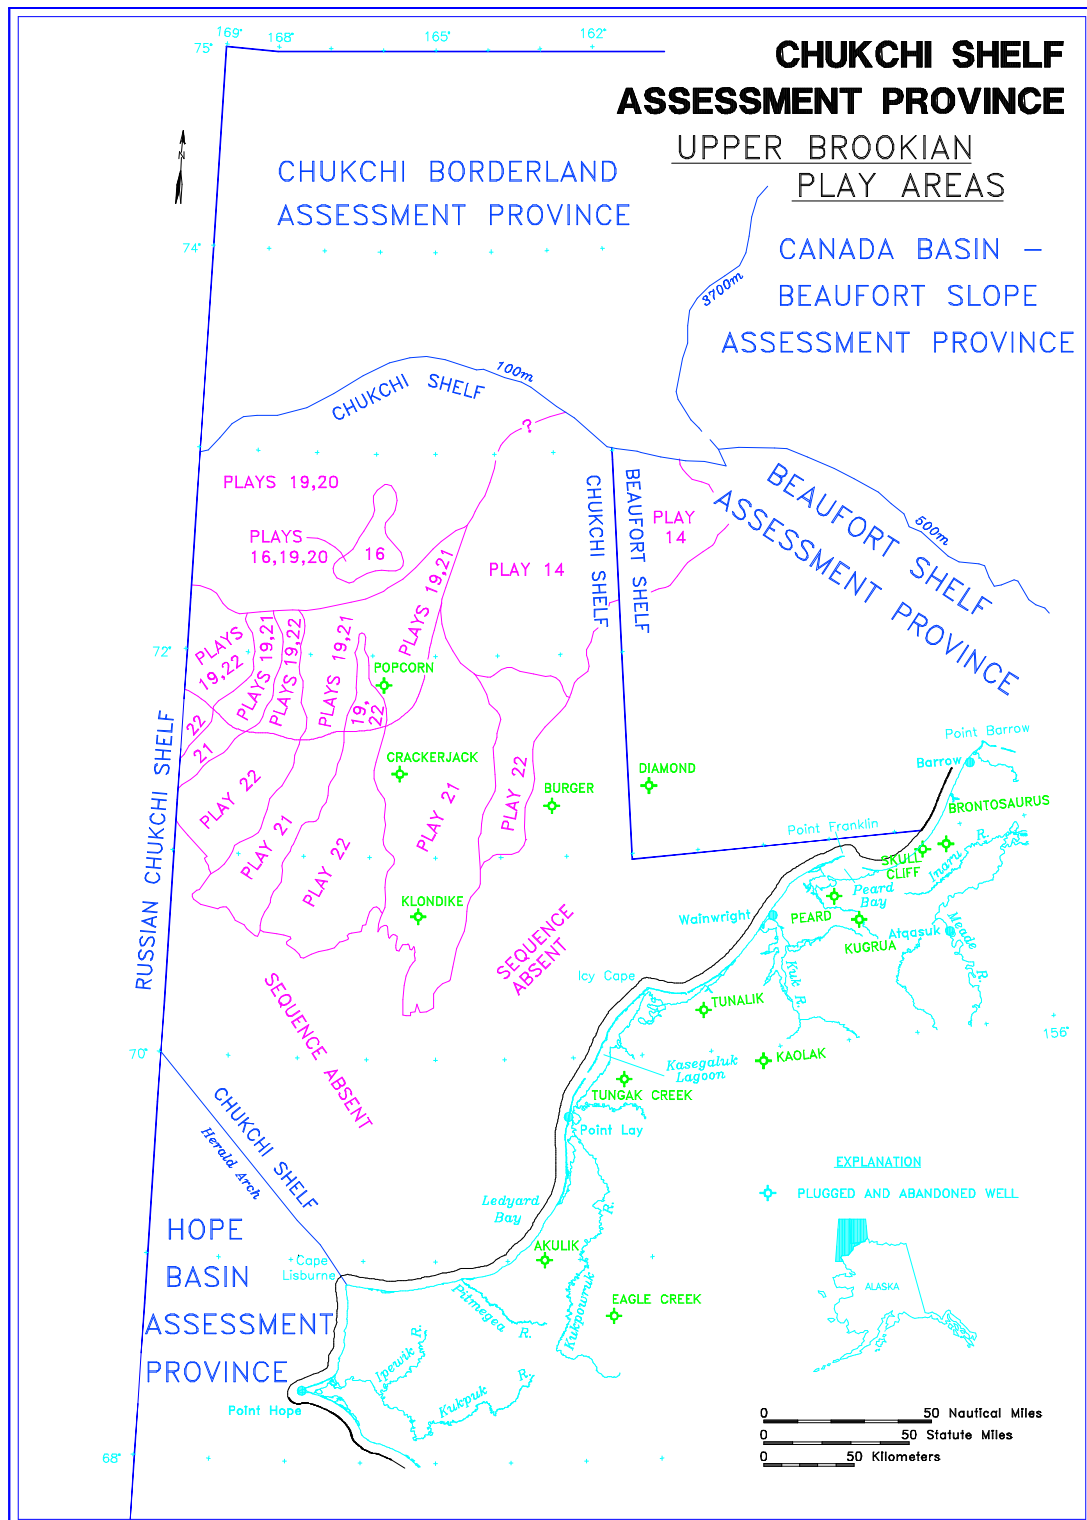 169°
168°
165°
162°
75°
CHUKCHI SHELF
ASSESSMENT PROVINCE
UPPER BROOKIAN
PLAY AREAS
N
CHUKCHI BORDERLAND
ASSESSMENT PROVINCE
74°
CANADA BASIN –
BEAUFORT SLOPE
ASSESSMENT PROVINCE
3700m
100m
CHUKCHI SHELF
?
PLAYS 19,20
PLAYS
16,19,20
16
PLAY 14
CHUKCHI SHELF
BEAUFORT SHELF
PLAY
14
BEAUFORT SHELF
ASSESSMENT PROVINCE
500m
PLAYS 19,21
PLAYS
19,22
PLAYS 19,21
PLAYS 19,22
PLAYS 19,21
19,
22
72°
POPCORN
22
21
PLAY 22
PLAY 21
PLAY 22
CRACKERJACK
PLAY 21
PLAY 22
BURGER
DIAMOND
KLONDIKE
RUSSIAN CHUKCHI SHELF
SEQUENCE
ABSENT
SEQUENCE ABSENT
Point Barrow
Barrow
BRONTOSAURUS
Point Franklin
SKULL
CLIFF
Inaru R.
Peard
Bay
PEARD
Wainwright
KUGRUA
Atqasuk
Meade R.
Kuk R.
Icy Cape
TUNALIK
156°
70°
KAOLAK
Kasegaluk
Lagoon
TUNGAK CREEK
Point Lay
CHUKCHI SHELF
Herald Arch
Ledyard
Bay
Kukpowruk R.
AKULIK
EAGLE CREEK
Cape
Lisburne
Pitmegea R.
HOPE
BASIN
ASSESSMENT
PROVINCE
Ipewik R.
Kukpuk R.
Point Hope
68°
EXPLANATION
PLUGGED AND ABANDONED WELL
ALASKA
0 50 Nautical Miles
0 50 Statute Miles
0 50 Kilometers